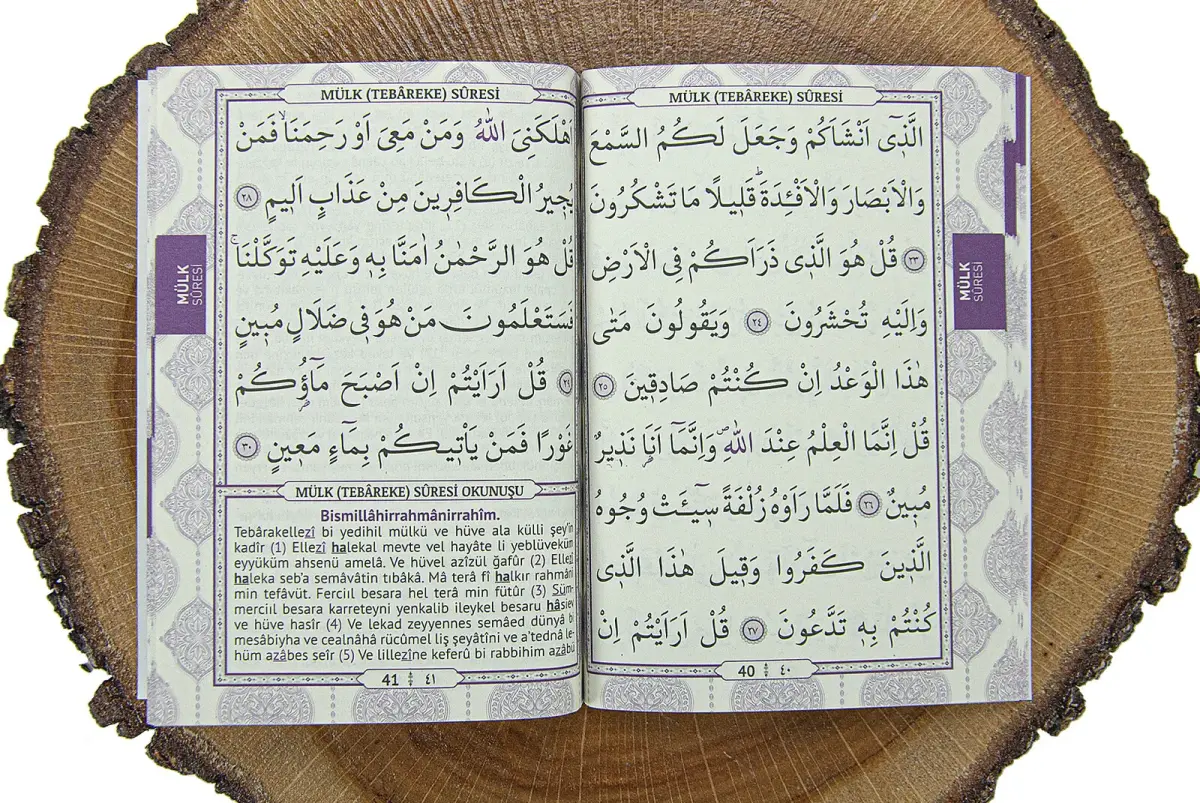 MÜLK (TEBÂREKE) SÛRESİ
الَّذ۪ٓى اَنْشَاَكُمْ وَجَعَلَ لَكُمُ السَّمْعَ
وَالْاَبْصَارَ وَالْاَفْـِٔدَةَۜ قَل۪يلًا مَا تَشْكُرُونَ
﴿٢٣﴾ قُلْ هُوَ الَّذ۪ى ذَرَاَكُمْ فِى الْاَرْضِ
وَاِلَيْهِ تُحْشَرُونَ ﴿٢٤﴾ وَيَقُولُونَ مَتٰى
هٰذَا الْوَعْدُ اِنْ كُنْتُمْ صَادِق۪ينَ ﴿٢٥﴾
قُلْ اِنَّمَا الْعِلْمُ عِنْدَ اللّٰهِۖ وَاِنَّمَٓا اَنَا۬ نَذ۪يرٌ
مُب۪ينٌ ﴿٢٦﴾ فَلَمَّا رَاَوْهُ زُلْفَةً س۪ٓيـَٔتْ وُجُوهُ
الَّذ۪ينَ كَفَرُوا وَق۪يلَ هٰذَا الَّذ۪ى
كُنْتُمْ بِه۪ تَدَّعُونَ ﴿٢٧﴾ قُلْ اَرَاَيْتُمْ اِنْ
40 ٤٠
MÜLK SÛRESİ
MÜLK (TEBÂREKE) SÛRESİ
اَهْلَكَنِىَ اللّٰهُ وَمَنْ مَعِىَ اَوْ رَحِمَنَاۙ فَمَنْ
يُج۪يرُ الْكَافِر۪ينَ مِنْ عَذَابٍ اَل۪يمٍ ﴿٢٨﴾
قُلْ هُوَ الرَّحْمٰنُ اٰمَنَّا بِه۪ وَعَلَيْهِ تَوَكَّلْنَاۚ
فَسَتَعْلَمُونَ مَنْ هُوَ ف۪ى ضَلَالٍ مُب۪ينٍ
﴿٢٩﴾ قُلْ اَرَاَيْتُمْ اِنْ اَصْبَحَ مَٓاؤُ۬كُمْ
غَوْرًا فَمَنْ يَاْت۪يكُمْ بِمَٓاءٍ مَع۪ينٍ ﴿٣٠﴾
MÜLK (TEBÂREKE) SÛRESİ OKUNUŞU
Bismillâhirrahmânirrahîm.
Tebârakellezî bi yedihil mülkü ve hüve ala külli şey'in
kadîr (1) Ellezî halekal mevte vel hayâte li yeblüveküm
eyyüküm ahsenü amelâ. Ve hüvel azîzül ğafûr (2) Ellezî
haleka seb'a semâvâtin tıbâkâ. Mâ terâ fî halkır rahmâni
min tefâvüt. Ferciıl besara hel terâ min fütûr (3) Süm-
merciıl besara karreteyni yenkalib ileykel besaru hâsiev
ve hüve hasîr (4) Ve lekad zeyyennes semâed dünyâ bi
mesâbiyha ve cealnâhâ rücûmel liş şeyâtîni ve a'tednâ le-
hüm azâbes seîr (5) Ve lillezîne keferû bi rabbihim azâbü
41 ٤١
MÜLK SÛRESİ